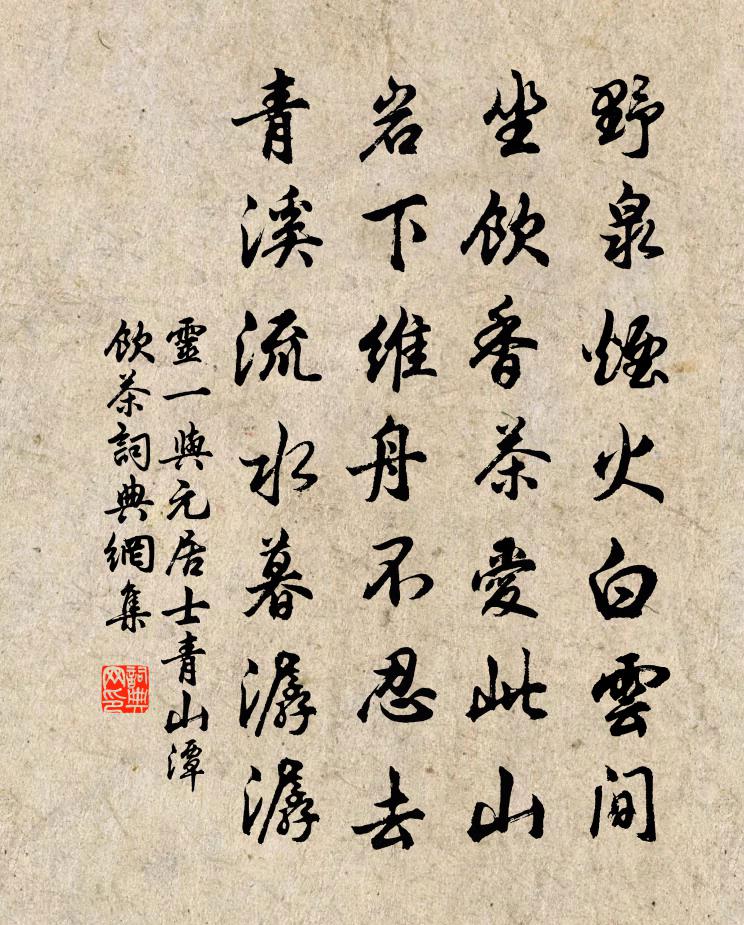 野泉煙火白雲间
坐飲香茶愛此山
岩下維舟不忍去
青溪流水暮潺潺
靈一與元居士青山潭
飲茶詞典網集
詞典
网印